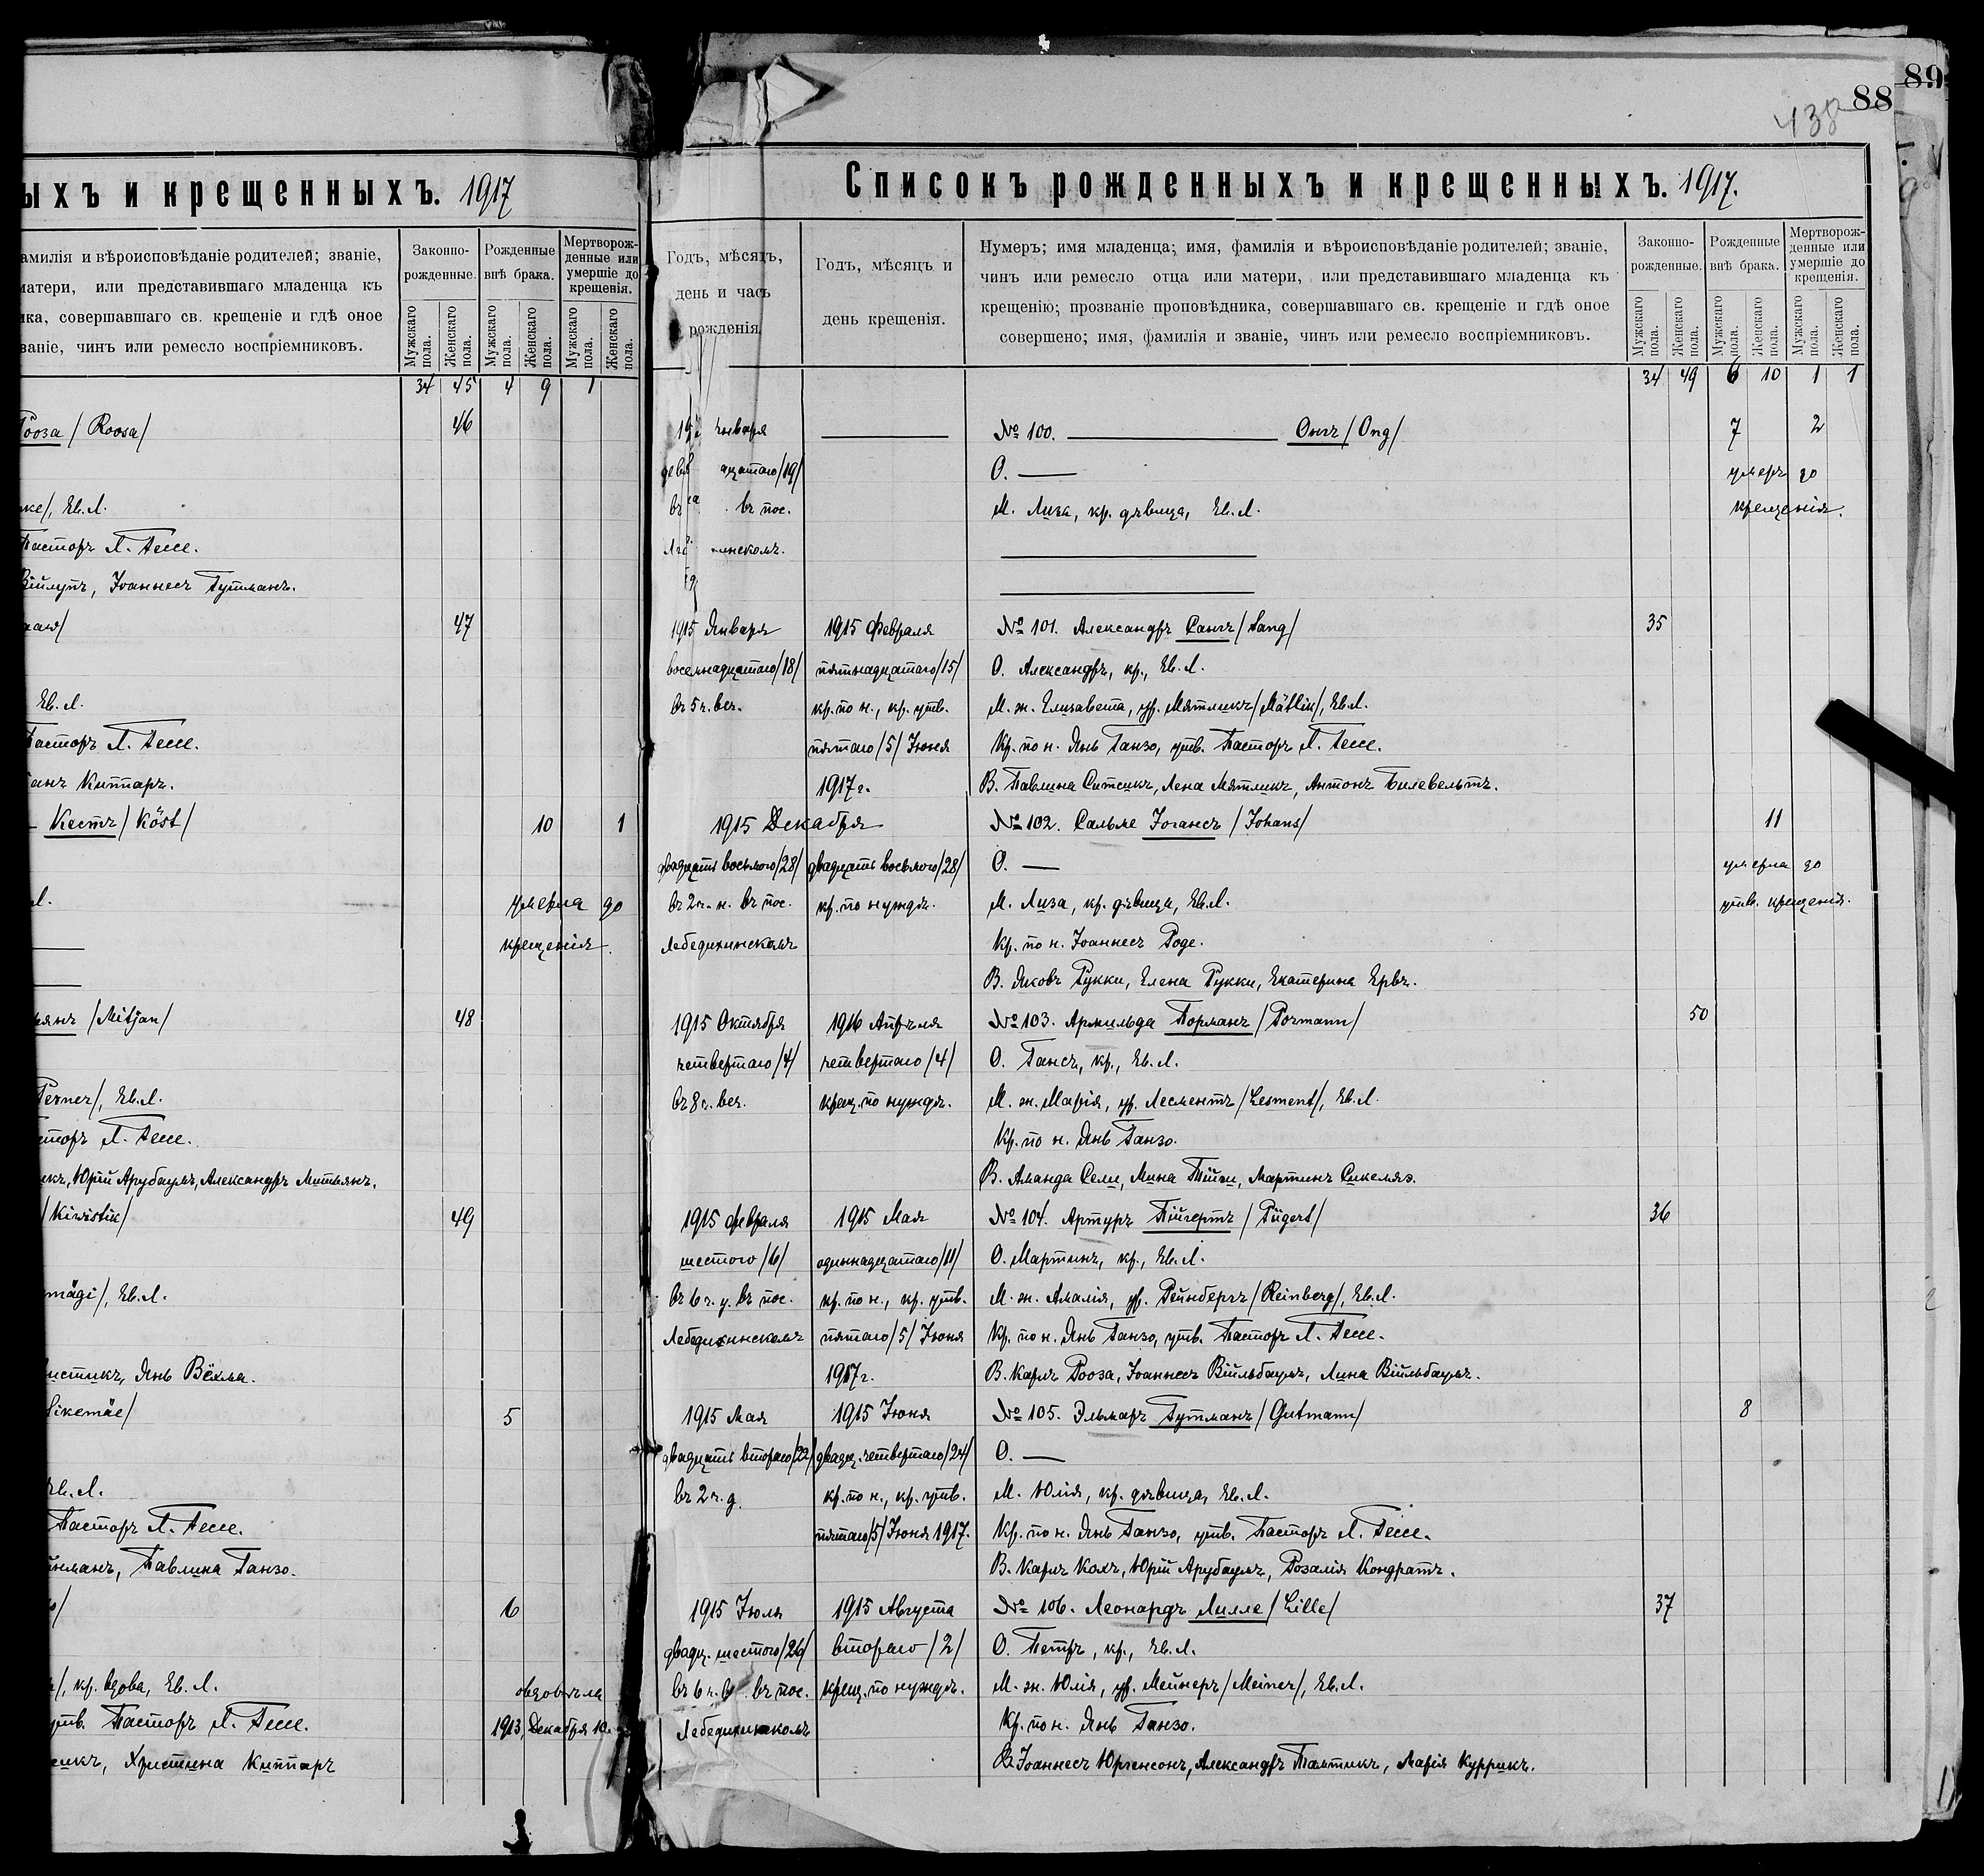 89
88
438
ыхъ и крещенныхъ. 1917
амилія и вѣроисповѣданіе родителей; званіе,
матери, или представившаго младенца къ
ика, совершавшаго св. крещеніе и гдѣ оное
званіе, чинъ или ремесло воспріемниковъ.
Законно-рожденные.
Рожденные внѣ брака.
Мертворож-денные или умершіе до крещенія.
Мужскаго пола.
Женскаго пола.
Мужскаго пола.
Женскаго пола.
Мужскаго пола.
Женскаго пола.
34 45 4 9 1
Рооза /Roosa/ 46
ке/, Ев.Л.
Пасторъ Л. Гессе.
Вiйлупъ, Іоаннесъ Гутманъ.
47
Ев.Л.
Пасторъ Л. Гессе.
анъ Киппаръ.
Кестъ /Köst/ 10 1
Л. умерла до
крещенія.
янъ /Mitjan/ 48
Perner/, Ев.Л.
сторъ Л. Гессе.
икъ, Юрій Арубаумъ, Александръ Митьянъ.
/Kiwistik/ 49
mägi/, Ев.Л.
истикъ, Янъ Вёхма.
Sikemäe/ 5
Ев.Л.
Пасторъ Л. Гессе.
нманъ, Павлина Ганзо.
6
/, кр. вдова, Ев.Л. овдовѣла
утв. Пасторъ Л. Гессе. 1913, Декабря 10.
икъ, Христина Киппаръ
Списокъ рожденныхъ и крещенныхъ. 1917.
Годъ, мѣсяцъ, день и часъ рожденія
Годъ, мѣсяцъ и день крещенія.
Нумеръ; имя младенца; имя, фамилія и вѣроисповѣданіе родителей; званіе,
чинъ или ремесло отца или матери, или представившаго младенца къ
крещенію; прозваніе проповѣдника, совершавшаго св. крещеніе и гдѣ оное
совершено; имя, фамилія и званіе, чинъ или ремесло воспріемниковъ.
Законно-рожденные.
Рожденные внѣ брака.
Мертворож-денные или умершіе до крещенія.
Мужскаго пола.
Женскаго пола.
Мужскаго пола.
Женскаго пола.
Мужскаго пола.
Женскаго пола.
34 49 6 10 1 1
января № 100. Онгъ /Ong/ 7 2
дцатаго /19/ О. — умеръ до
въ пос. М. Лиза, кр. дѣвица, Ев.Л. крещенія.
1915 Января 1915 Февраля № 101. Александръ Сангъ /Sang/ 35
восемнадцатаго /18/ пятнадцатаго /15/ О. Александръ, кр., Ев.Л.
въ 5 ч. веч. кр. по н., кр. утв. М. ж. Елизавета, ур. Мятликъ /Mätlik/, Ев.Л.
пятаго /5/ Іюня Кр. по н. Янъ Ганзо, утв. Пасторъ Л. Гессе.
1917 г. В. Павлина Ситсикъ, Лена Мятликъ, Антонъ Билевельтъ.
1915 Декабря № 102. Сальме Іогансъ /Johans/ 11
двадцать восьмого /28/ двадцать восьмого /28/ О. — умерла до
въ 2 ч. н. въ пос. кр. по нуждѣ. М. Лиза, кр. дѣвица, Ев.Л. утв. крещенія.
Лебедихинскомъ Кр. по н. Іоаннесъ Роде.
В. Яковъ Рукки, Елена Рукки, Екатерина Ервъ.
1915 Октября 1916 Апрѣля № 103. Армильда Порманъ /Pormann/ 50
четвертаго /4/ четвертаго /4/ О. Гансъ, кр., Ев.Л.
въ 8 ч. веч. крещ. по нуждѣ. М. ж. Марія, ур. Лесментъ /Lesment/, Ев.Л.
Кр. по н. Янъ Ганзо.
В. Аманда Сели, Мина Пійги, Мартинъ Сикемяэ.
1915 Февраля 1915 Мая № 104. Артуръ Пійгертъ /Piigert/ 36
шестого /6/ одиннадцатаго /11/ О. Мартинъ, кр., Ев.Л.
въ 6 ч. у. въ пос. кр. по н., кр. утв. М. ж. Амалія, ур. Рейнбергъ /Reinberg/, Ев.Л.
Лебедихинскомъ пятаго /5/ Іюня Кр. по н. Янъ Ганзо, утв. Пасторъ Л. Гессе.
1917 г. В. Карлъ Рооза, Іоаннесъ Війльбаумъ, Лина Війльбаумъ.
1915 Мая 1915 Іюня № 105. Эльмаръ Гутманъ /Gutmann/ 8
двадцать второго /22/ двадц. четвертаго /24/ О. —
въ 2 ч. д. кр. по н., кр. утв. М. Юлія, кр. дѣвица, Ев.Л.
пятаго /5/ Іюня 1917. Кр. по н. Янъ Ганзо, утв. Пасторъ Л. Гессе.
В. Карлъ Кохъ, Юрій Арубаумъ, Розалія Кондратъ.
1915 Іюля 1915 Августа № 106. Леонардъ Лилле /Lille/ 37
двадц. шестого /26/ второго /2/ О. Петръ, кр., Ев.Л.
въ 6 ч. в. въ пос. крещ. по нуждѣ. М. ж. Юлія, ур. Мейнеръ /Meiner/, Ев.Л.
Лебедихинскомъ Кр. по н. Янъ Ганзо.
В. Іоаннесъ Юргенсонъ, Александръ Палтикъ, Марія Куррикъ.